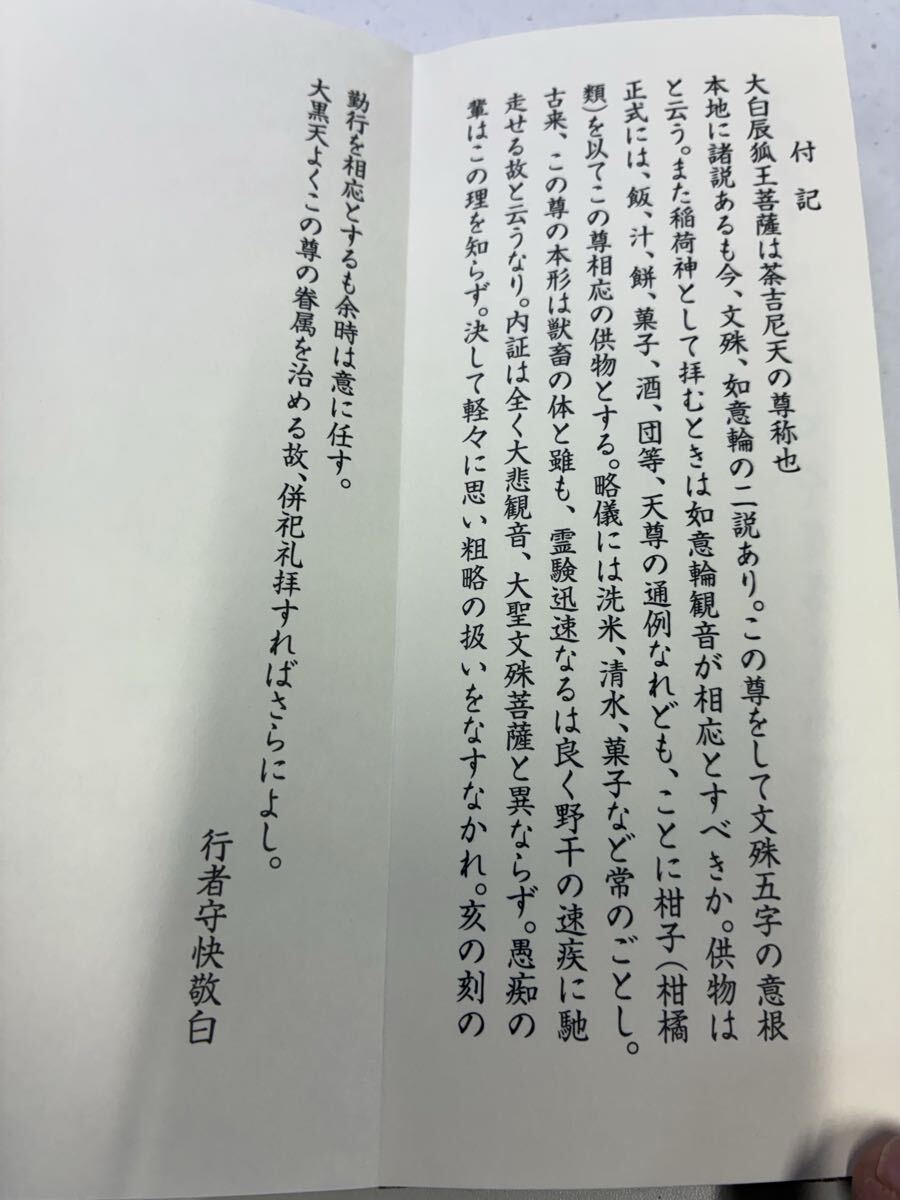 付記
大白辰狐王菩薩は荼吉尼天の尊称也
本地に諸説あるも今、文殊、如意輪の二説あり。この尊をして文殊五字の意根
と云う。また稲荷神として拝むときは如意輪観音が相応とすべきか。供物は
正式には、飯、汁、餅、菓子、酒、団等、天尊の通例なれども、ことに柑子(柑橘
類)を以てこの尊相応の供物とする。略儀には洗米、清水、菓子など常のごとし。
古来、この尊の本形は獣畜の体と雖も、霊験迅速なるは良く野干の速疾に馳
走せる故と云うなり。内証は全く大悲観音、大聖文殊菩薩と異ならず。愚痴の
輩はこの理を知らず。決して軽々に思い粗略の扱いをなすなかれ。亥の刻の
勤行を相応とするも余時は意に任す。
大黒天よくこの尊の眷属を治める故、併祀礼拝すればさらによし。
行者守快敬白